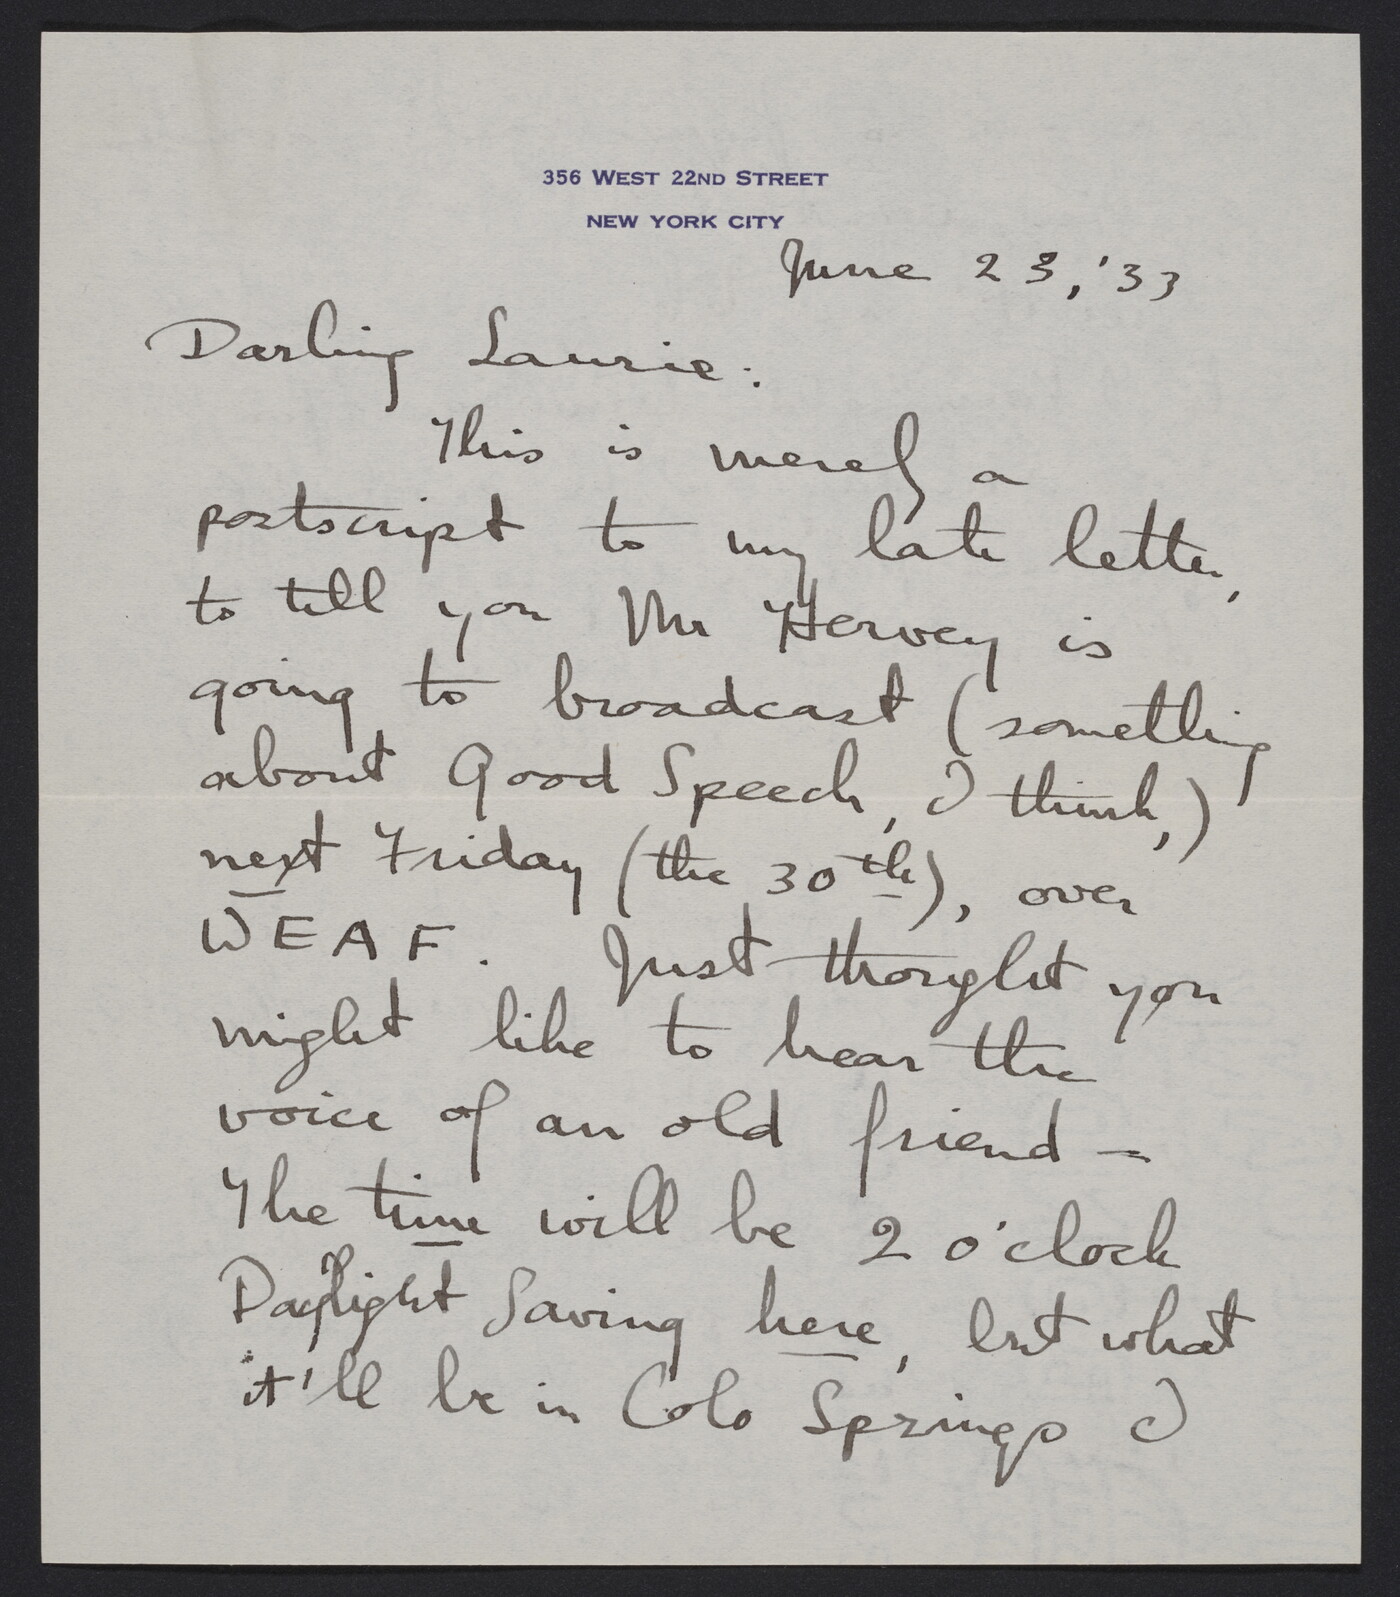 356 WEST 22ND STREET
NEW YORK CITY
June 23, '33
Darling Laurie:
This is merely a
postscript to my late letter,
to tell you Mr Hervey is
going to broadcast (something
about Good Speech, I think,)
next Friday (the 30th), over
WEAF. Just thought you
might like to hear the
voice of an old friend –
The time will be 2 o'clock
Daylight Saving here, but what
it'll be in Colo Springs I